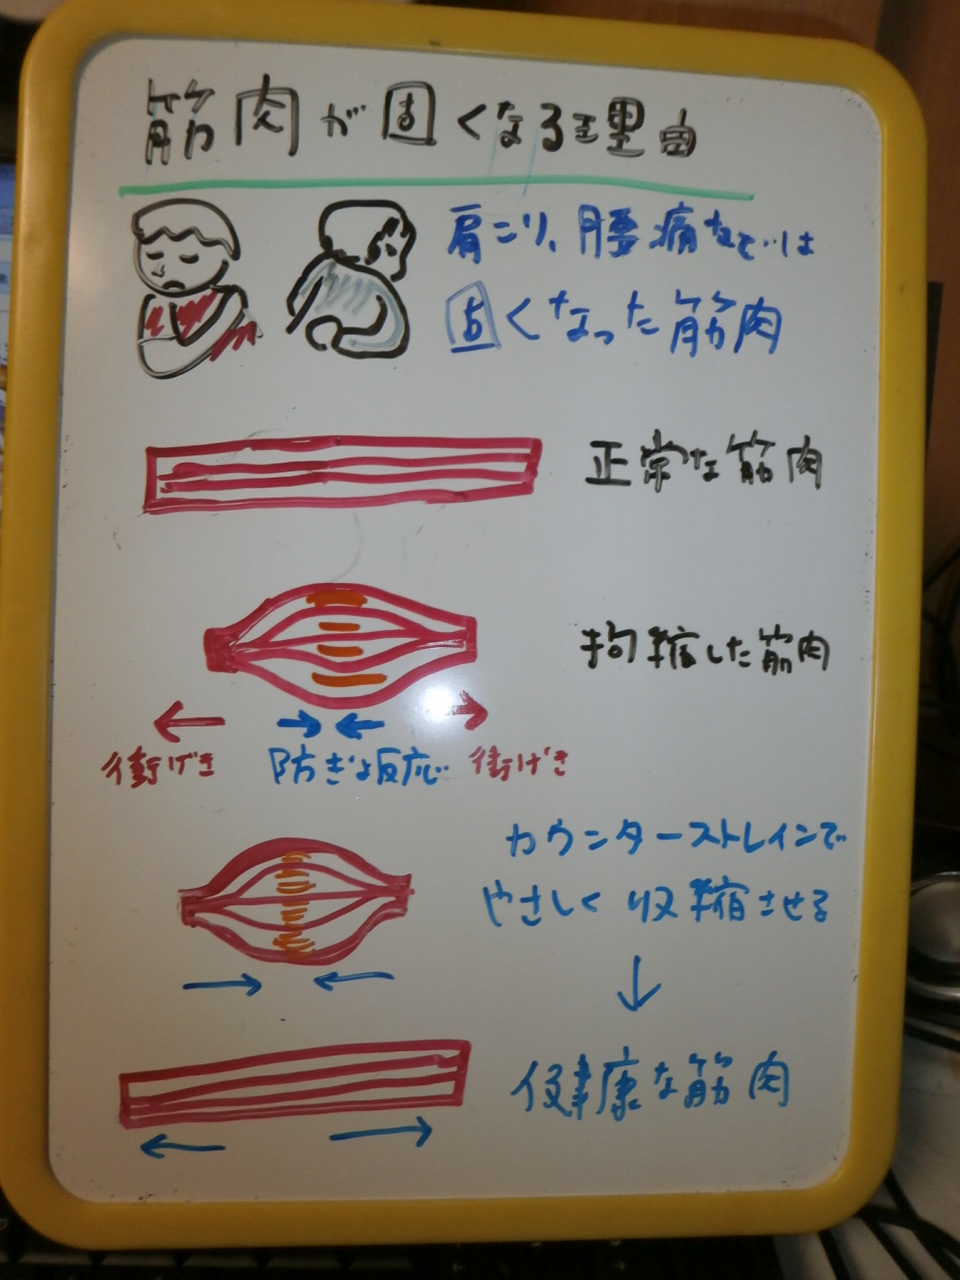 筋肉が固くなる理由
肩こり、腰痛などでは
固くなった筋肉
正常な筋肉
拘縮した筋肉
衝げき 防ぎょ反応 衝げき
カウンターストレインで
やさしく収縮させる
健康な筋肉